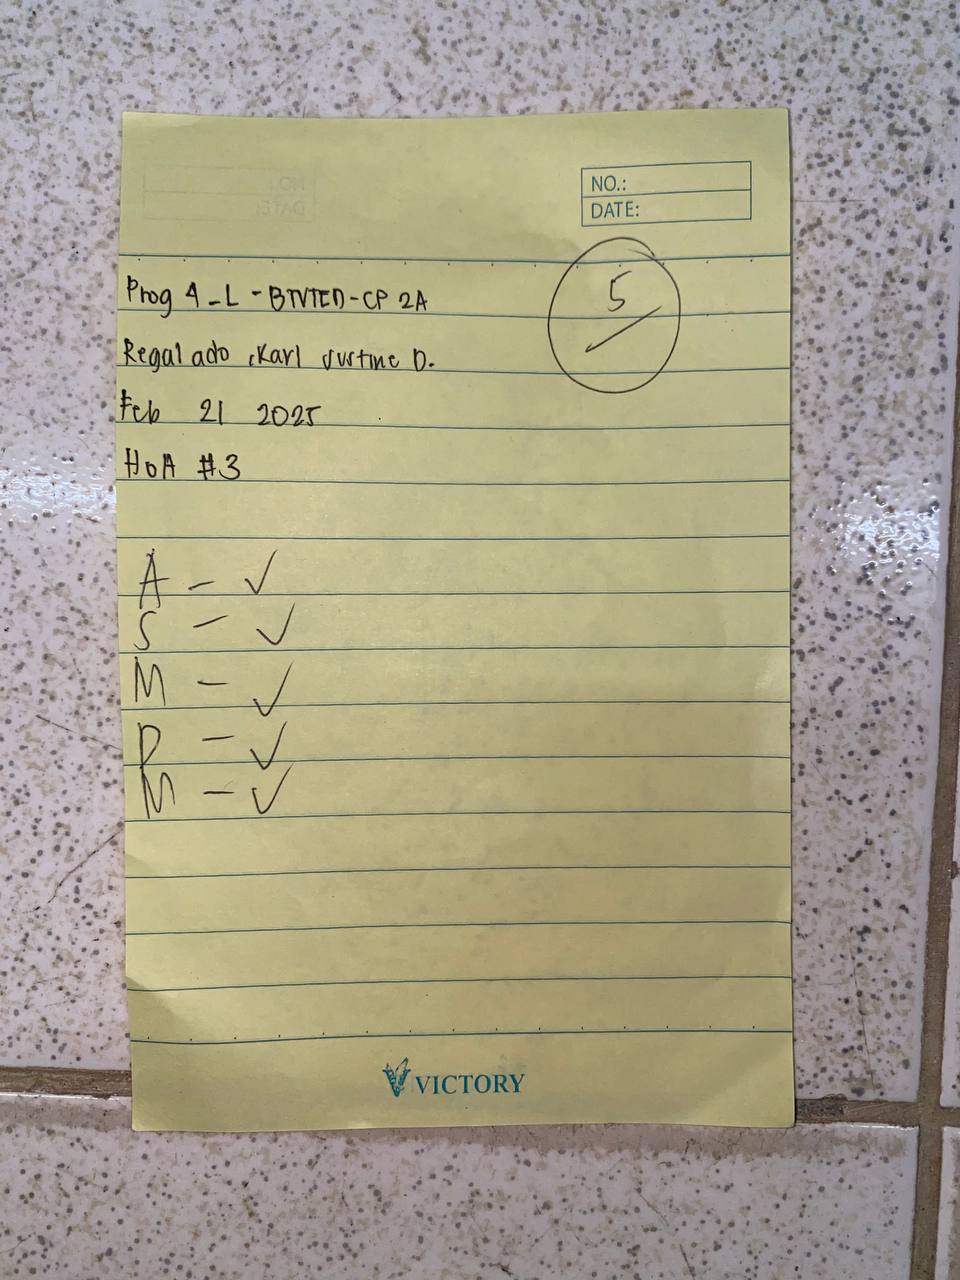 NO.:
DATE:
5
Prog 4_L - BTVTED-CP 2A
Regalado, Karl Justine D.
Feb 21 2025
HOA #3
A - ✓
S - ✓
M - ✓
D - ✓
M - ✓
VICTORY